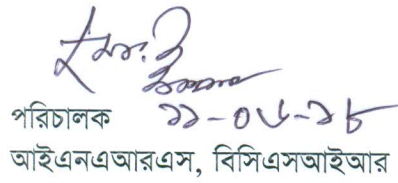 পরিচালক ১১-০৬-১৮
আইএনএআরএস, বিসিএসআইআর